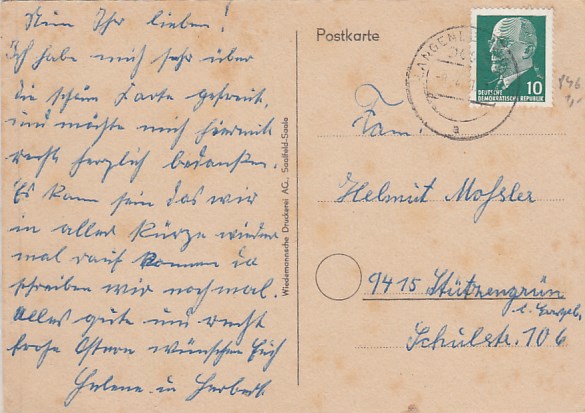 Nun Ihr lieben!
Ich habe mich sehr über
die schöne Karte gefreut,
und möchte mich hiermit
recht herzlich bedanken.
Es kann sein das wir
in aller Kürze wieder
mal rauf kommen da
schreiben wir nochmal.
Alles gute und recht
frohe Ostern wünschen Euch
Helene u Herbert.
Wiedemannsche Druckerei AG, Saalfeld-Saale
Postkarte
DEUTSCHE
DEMOKRATISCHE REPUBLIK
10
a
Fam.
Helmut Mossler
9415 Stützengrün
Schulstr. 106